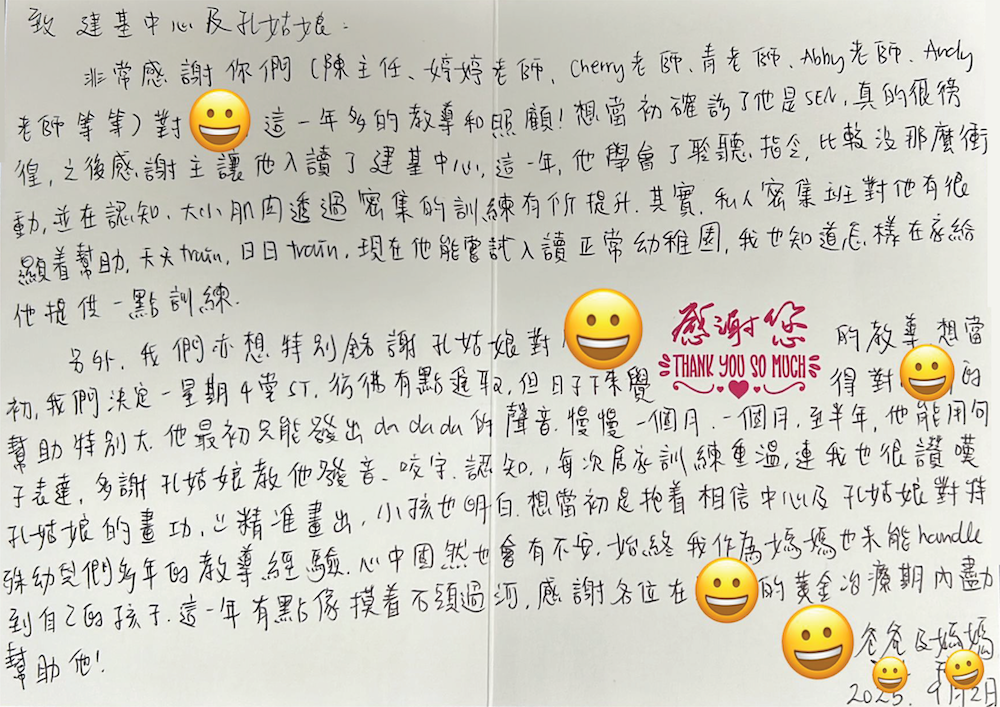 致 建基中心及孔姑娘：
非常感謝你們（陳主任、婷婷老師、Cherry老師、青老師、Abby老師、Andy
老師等等）對 這一年多的教導和照顧！想當初確診了他是SEN，真的很徬
徨，之後感謝主讓他入讀了建基中心，這一年，他學會了聆聽、指令，比較沒那麼衝
動，並在認知、大小肌肉透過密集的訓練有所提升。其實，私人密集班對他有很
顯着幫助，天天train，日日train，現在他能嘗試入讀正常幼稚園，我也知道怎樣在家給
他提供一點訓練。
另外，我們亦想特別銘謝孔姑娘對 感謝您 的教導 想當
THANK YOU SO MUCH
初，我們決定一星期4堂ST，彷彿有點進取，但日子下來覺 得對 的
幫助特別大。他最初只能發出da da da的聲音，慢慢一個月、一個月，至半年，他能用句
子表達，多謝孔姑娘教他發音、咬字、認知，每次居家訓練重溫，連我也很讚嘆
孔姑娘的畫功，精準畫出，小孩也明白。想當初是抱着相信中心及孔姑娘對特
殊幼兒們多年的教導經驗，心中固然也會有不安，始終我作為媽媽也未能handle
到自己的孩子。這一年有點像摸着石頭過河，感謝各位在 的黃金治療期內盡力
幫助他！
爸爸及媽媽
2025. 9月2日